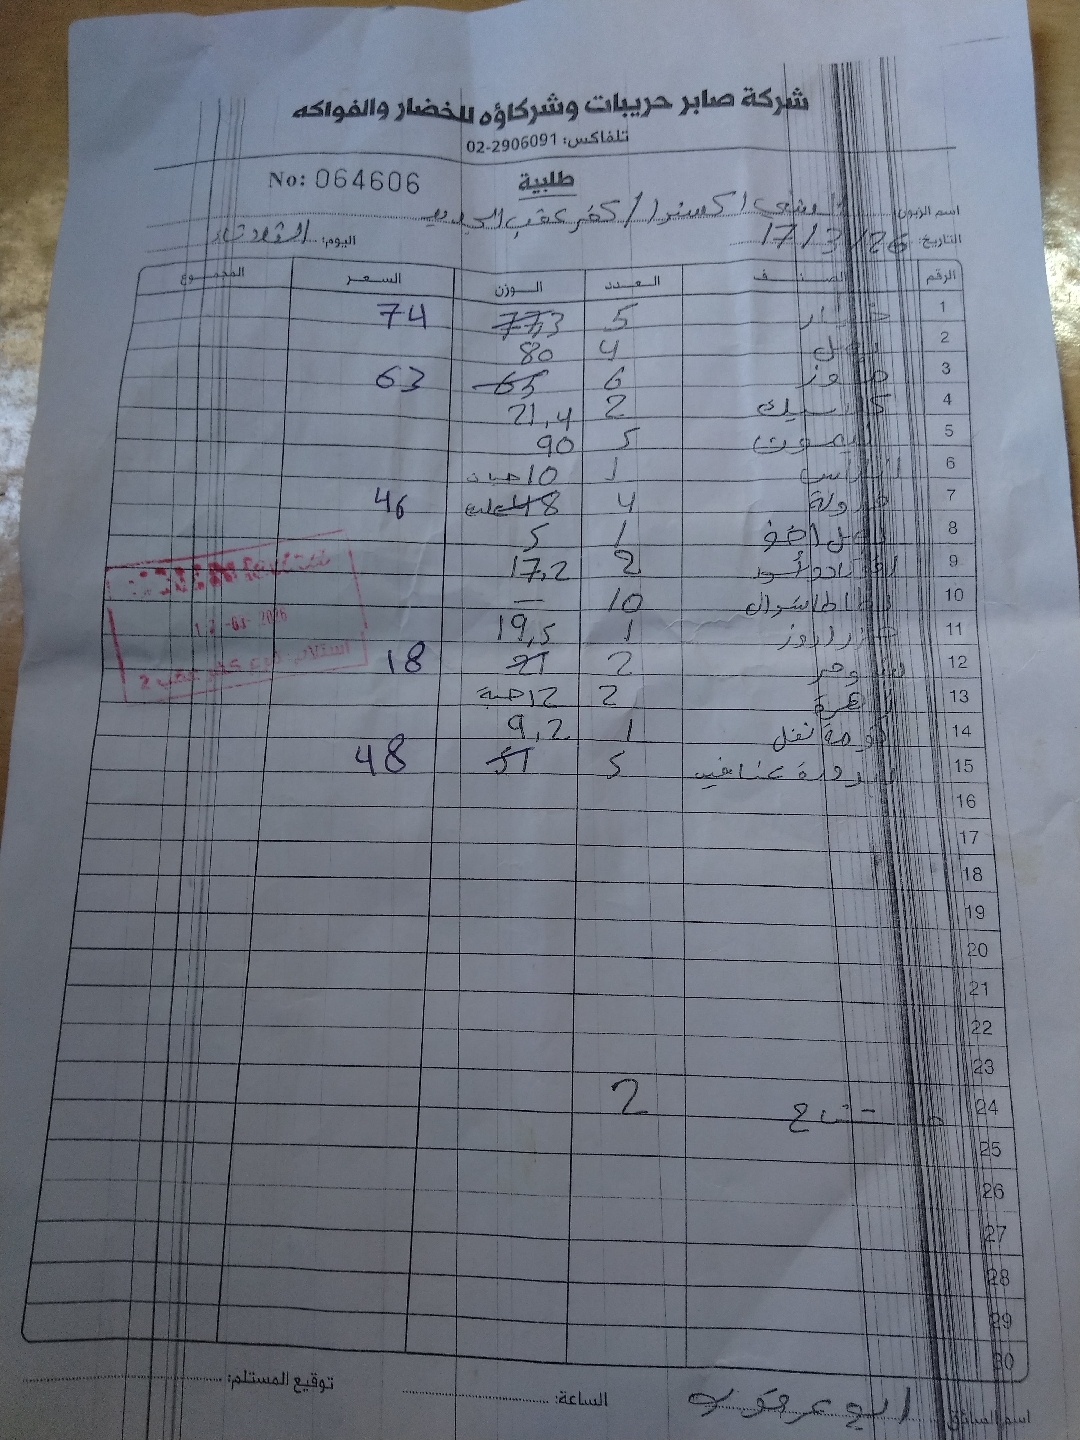 شركة صابر حريبات وشركاؤه للخضار والفواكه
تلفاكس: 02-2906091
طلبية
No: 064606
اسم الزبون: اكسترا / كفر عقب الجديد
التاريخ: 17/3/26 اليوم: الثلاثاء
الرقم الصنف العدد الوزن السعر المجموع
1 خيار 5 77,3 74
2 بصل 4 80
3 موز 6 65 63
4 2 21,4
5 ليمون 5 90
6 اناناس 1 10 حبات
7 فرولة 4 48 علبة 46
8 بصل اخضر 1 5
9 افوكادو 2 17,2
10 بطاطا شوال 10 —
11 1 19,5
12 2 21 18
13 زهرة 2 12 حبة
14 1 9,2
15 بندورة عناقيد 5 51 48
16
17
18
19
20
21
22
23
24 2
25
26
27
28
29
30
17-03-2026
اسم السائق:
الساعة:
توقيع المستلم: